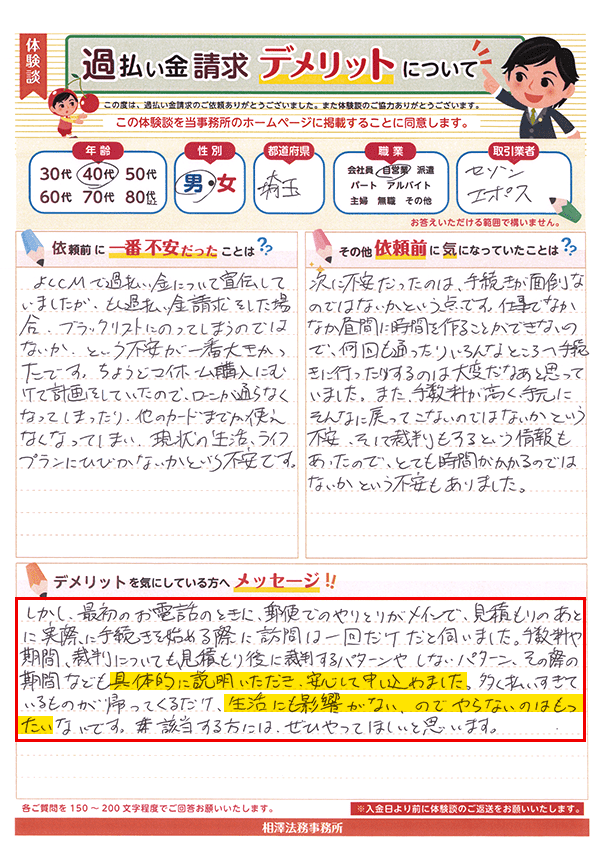 体験談
過払い金請求 デメリットについて
この度は、過払い金請求のご依頼ありがとうございました。また体験談のご協力ありがとうございます。
この体験談を当事務所のホームページに掲載することに同意します。
年齢
30代 40代 50代
60代 70代 80代以上
性別
男・女
都道府県
埼玉
職業
会社員 自営業 派遣
パート アルバイト
主婦 無職 その他
取引業者
セゾン
エポス
お答えいただける範囲で構いません。
依頼前に一番不安だったことは??
よくCMで過払い金について宣伝して
いましたが、もし過払い金請求をした場
合、ブラックリストにのってしまうのでは
ないか、という不安が一番大きかっ
たです。ちょうどマイホーム購入にむ
けて計画をしていたので、ローンが通らなく
なってしまったり、他のカードまでが使え
なくなってしまい、現状の生活、ライフ
プランにひびかないかという不安です。
その他依頼前に気になっていたことは??
次に不安だったのは、手続きが面倒な
のではないかという点です。仕事でなか
なか昼間に時間を作ることができないの
で、何回も通ったりいろんなところへ手続
きに行ったりするのは大変だなあと思って
いました。また、手数料が高く、手元に
そんなに戻ってこないのではないかという
不安、そして裁判もするという情報も
あったので、とても時間がかかるのでは
ないかという不安もありました。
デメリットを気にしている方へ メッセージ!!
しかし、最初のお電話のときに、郵便でのやりとりがメインで、見積もりのあと
に実際に手続きを始める際に訪問は一回だけだと伺いました。手数料や
期間、裁判についても見積もり後に裁判するパターンや しないパターン、その際の
期間なども具体的に説明いただき、安心して申し込めました。多く払いすぎて
いるものが帰ってくるだけ、生活にも影響がない、のでやらないのはもっ
たいないです。該当する方には、ぜひやってほしいと思います。
各ご質問を150～200文字程度でご回答お願いいたします。
※入金日より前に体験談のご返送をお願いいたします。
相澤法務事務所